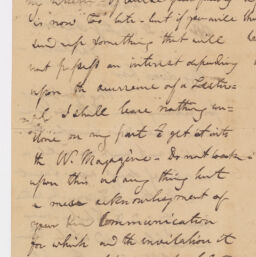 is now too late - but if you will then
send up something that will
not possess an interest depending
upon the occurrence of a Festi-
val I shall leave nothing un-
done on my part to get it into
the W. Magazine - Do not look
upon this as any thing but
a mere acknowledgment of
your kind Communication
for which and the invitation it